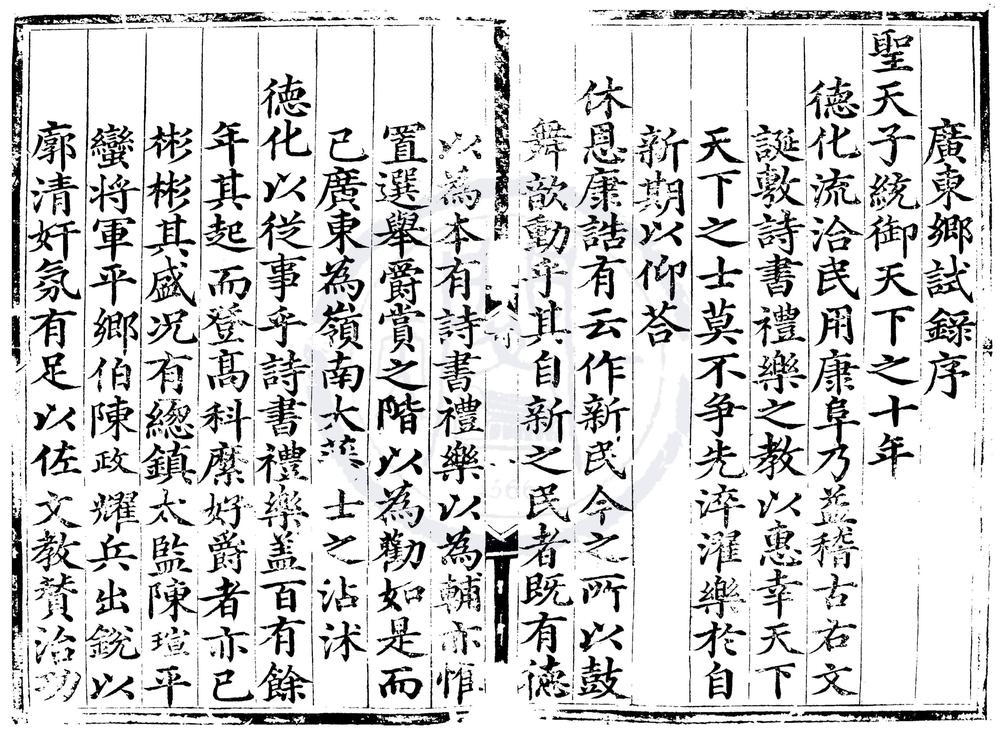 廣東鄉試錄序
聖天子統御天下之十年
德化流洽民用康阜乃益稽古右文
誕敷詩書禮樂之教以惠幸天下
天下之士莫不争先淬濯樂於自
新期以仰荅
休恩康誥有云作新民今之所以鼓
舞歆動乎其自新之民者既有德
以為本有詩書禮樂以為輔亦惟
置選舉爵賞之階以為勸如是而
已廣東為嶺南大 士之沾沭
德化以從事乎詩書禮樂盖百有餘
年其起而登髙科縻好爵者亦已
彬彬其盛况有總鎮太監陳瑄平
蠻将軍平鄉伯陳政耀兵出銳以
廓清奸氛有足以佐文教賛治功